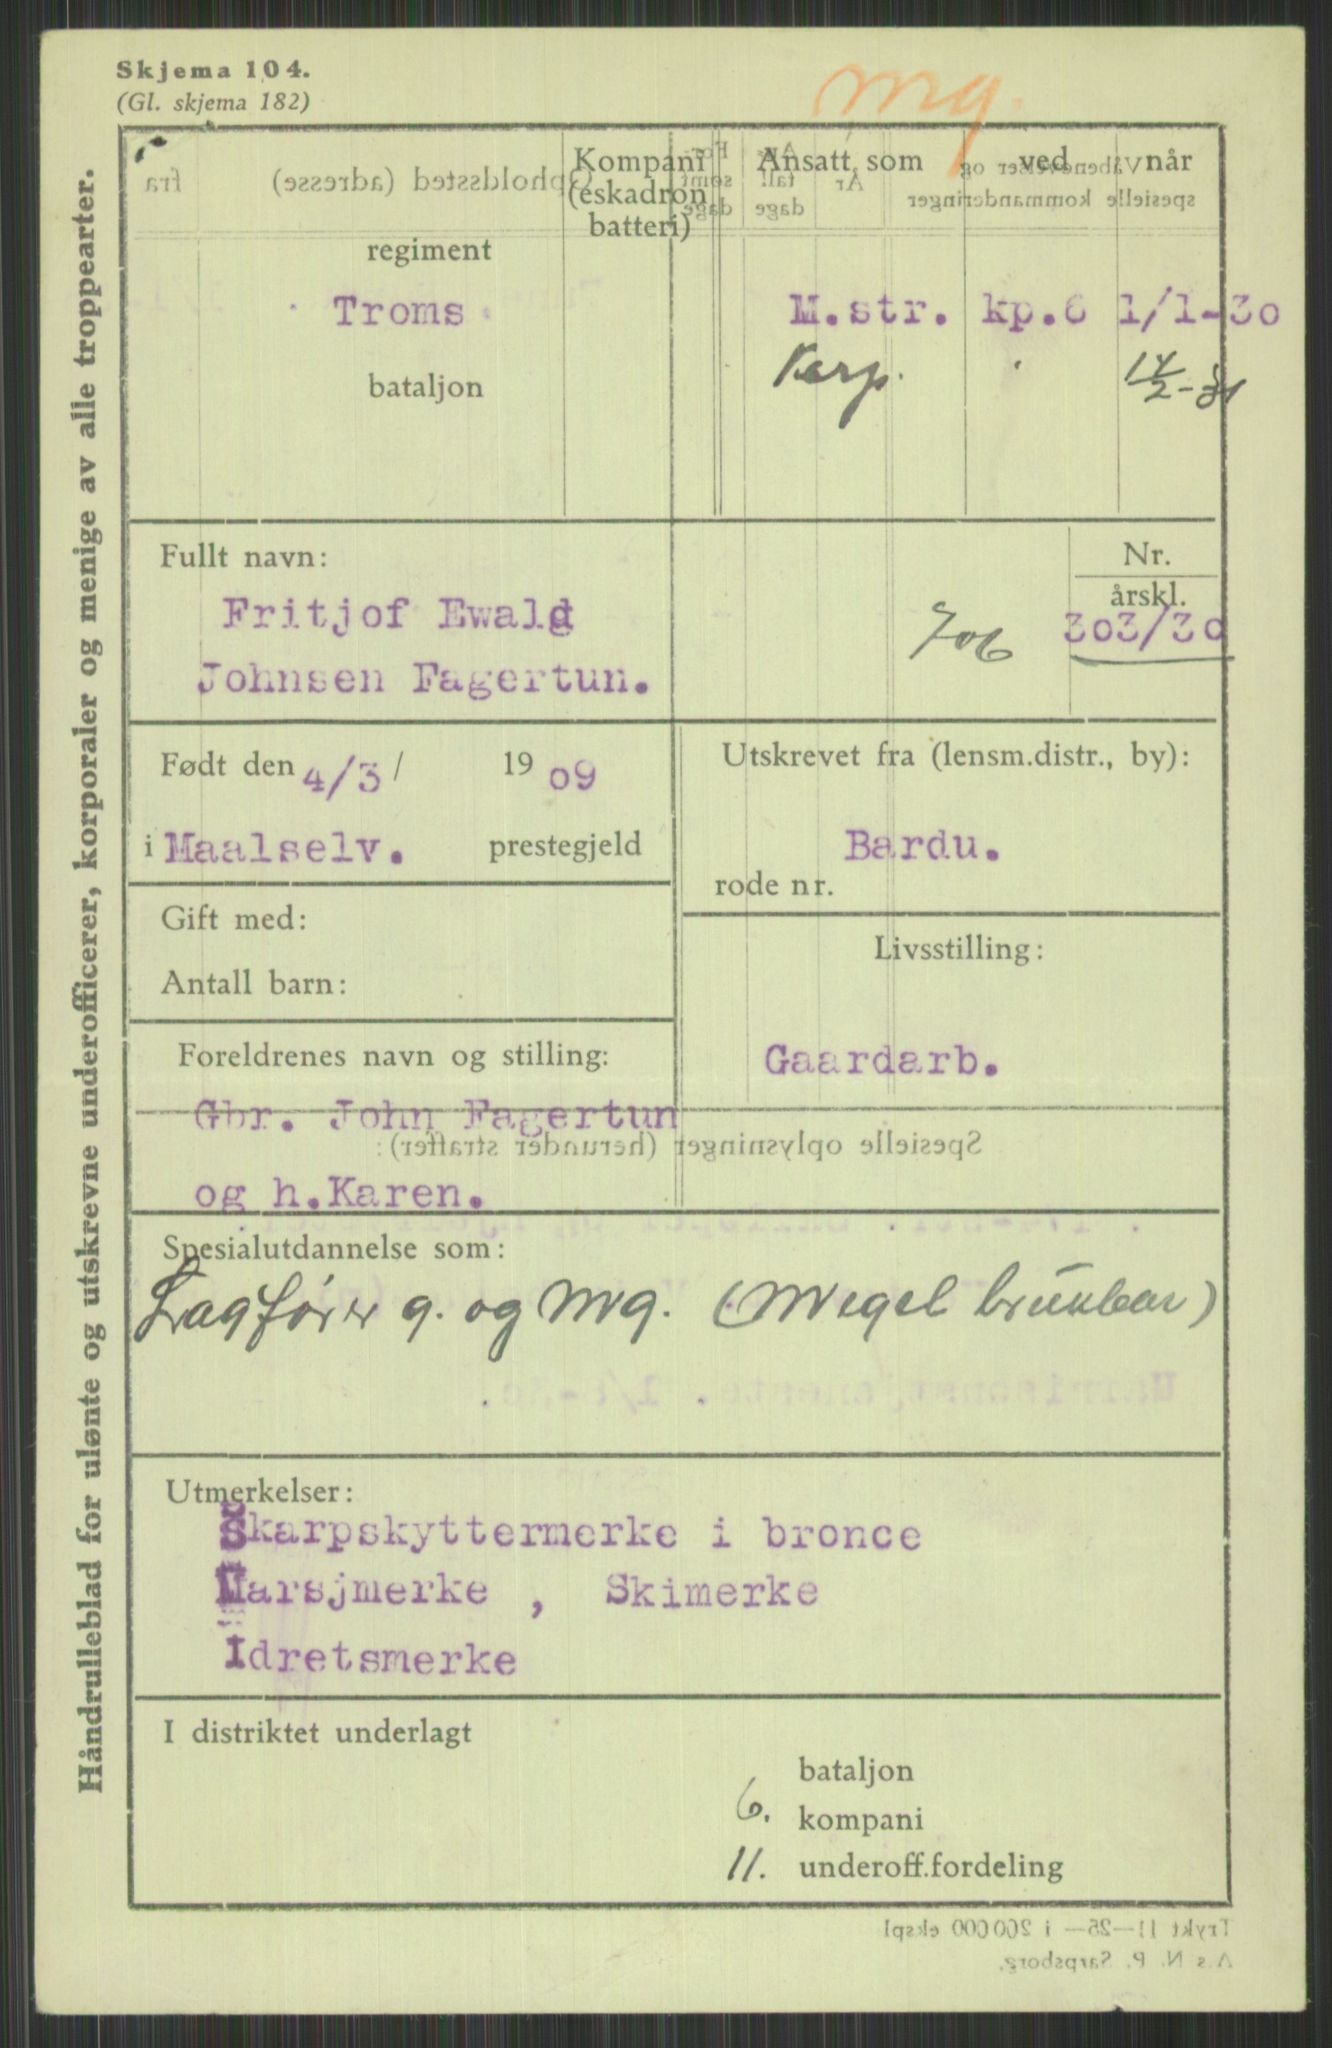 Skjema 104.
(Gl. skjema 182)
mg.
Håndrulleblad for ulønte og utskrevne underofficerer, korporaler og menige av alle troppearter.
Kompani (eskadron batteri)
Ansatt som
ved
når
regiment
Troms
M.str. kp.6 1/1-30
Korp. 14/2-31
bataljon
Fullt navn:
Fritjof Ewald
Johnsen Fagertun.
706
Nr.
årskl.
303/30
Født den 4/3 / 19 09
i Maalselv. prestegjeld
Utskrevet fra (lensm.distr., by):
Bardu.
rode nr.
Gift med:
Antall barn:
Livsstilling:
Gaardarb.
Foreldrenes navn og stilling:
Gbr. John Fagertun
og h.Karen.
Spesialutdannelse som:
Lagfører g. og mg. (Meget brukbar)
Utmerkelser:
Skarpskyttermerke i bronce
Marsjmerke , Skimerke
Idretsmerke
I distriktet underlagt
bataljon
6. kompani
11. underoff.fordeling